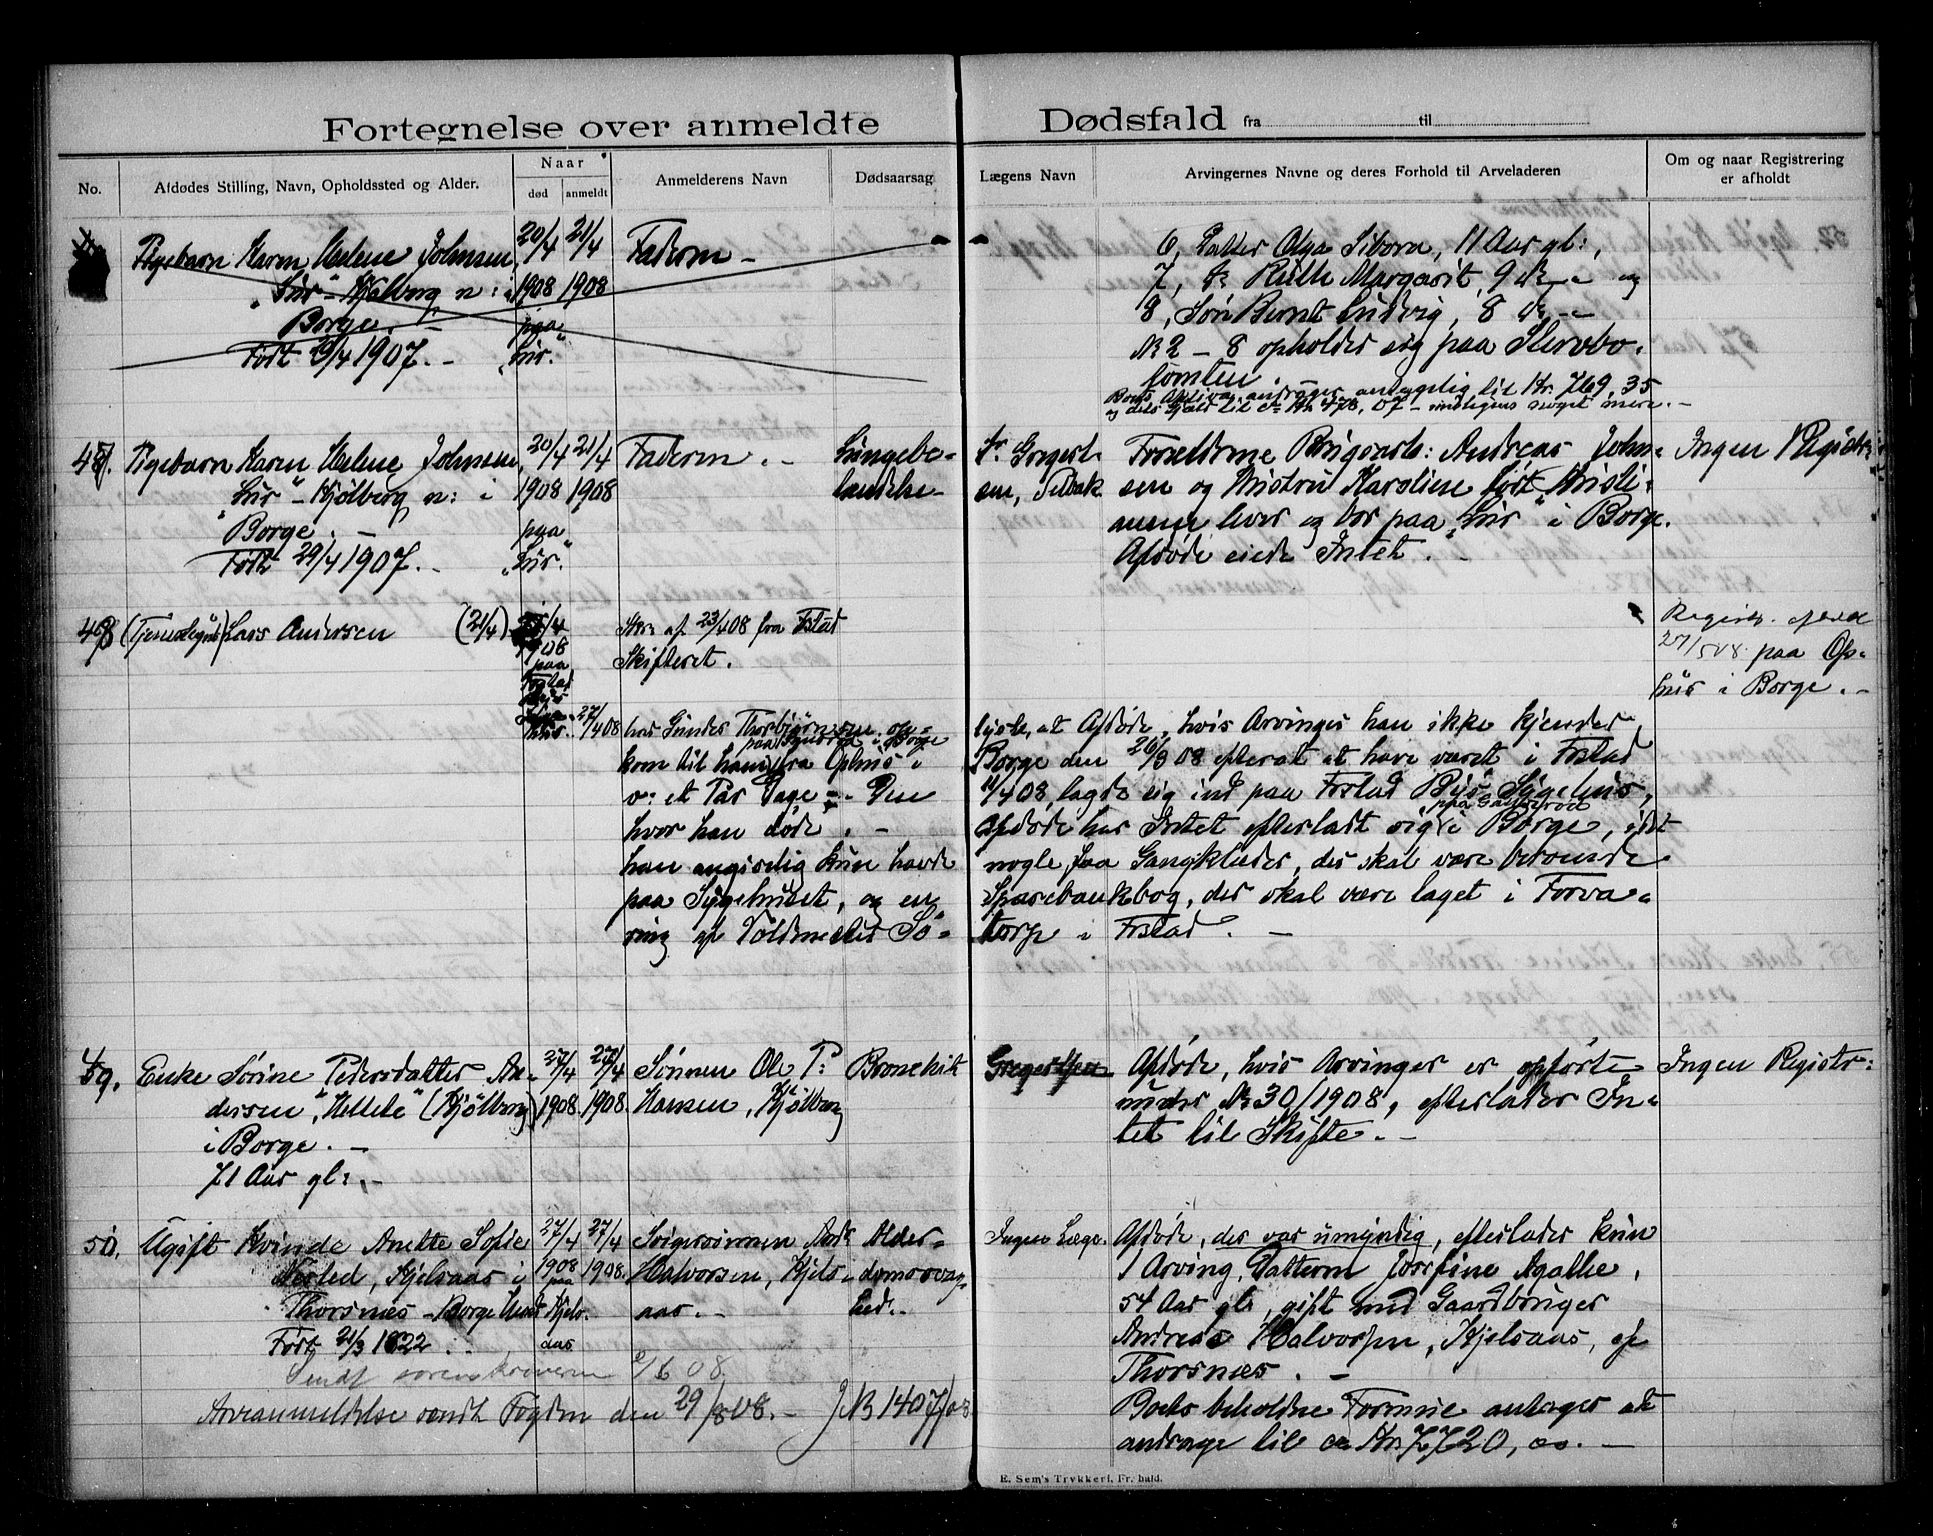 Fortegnelse over anmeldte Dødsfald fra til
No.
Afdødes Stilling, Navn, Opholdssted og Alder.
Naar
død anmeldt
Anmelderens Navn
Dødsaarsag
Lægens Navn
Arvingernes Navne og deres Forhold til Arveladeren
Om og naar Registrering
er afholdt
Pigebarn Karen Helene Johnsen,
"Lur" - Kjølberg n: i
Borge. -
Født 29/4 1907. -
20/4 21/4
1908 1908
paa
"Lur".
Faderen -
6, Datter Olga Sibora, 11 Aar gl:,
7, do Ruth Margarit, 9 do - og
8, Søn Bernt Ludvig, 8 do -
No 2 - 8 opholder sig paa Stervbo-
tomten.
Boets Aktiva andrager antagelig til Kr. 769,35
og dets Gjæld til ca Kr 478,07 - muligens noget mere. -
47. Pigebarn Karen Helene Johnsen,
"Lur" - Kjølberg n: i
Borge. -
Født 29/4 1907. -
20/4 21/4
1908 1908
paa
"Lur".
Faderen. -
Lungebe-
tændelse -
Dr. Gregert-
sen, Selbak
Forældrene Ringsarb: Andreas John-
sen og Hustru Karoline født Kristi-
ansen lever og bor paa "Lur" i Borge.
Afdøde eiede Intet. -
Ingen Registr:
48. (Tjenestegut) Lars Andersen (21/4)
1908
paa
Skr. af 23/4 08 fra Fstad
Skifteret.
Registr. afholdt
27/5 08 paa Op-
hus i Borge. -
27/4 08
har Gunder Thorbjørnsen op-
paa i Borge
kom til ham fra Ophus i
o: et Par Dage - Den
hvor han døde. -
han angivelig kun havde
paa Sygehuset, og en
ring af Politmester Sö-
lyst, at Afdøde, hvis Arvinger han ikke kjender
Borge den 26/3 08 efterat at have været i Fstad
11/4 08, lagde sig ind paa Fstad Bys Sygehus,
paa
Afdøde har Intet efterladt sig i Borge, idet
nogle faa Gangklæder, der skal være beroende
Sparebankbog, der skal være taget i Forva-
torp i Fstad. -
49. Enke Sørine Pedersdatter An-
dersen "Hellete" (Kjølberg)
i Borge. -
71 Aar gl:. -
27/4 27/4
1908. 1908.
Sønnen Ole P:
Hansen, Kjølberg
Bronchit
Gregertsen
Afdøde, hvis Arvinger er opførte
under No 30/1908, efterlader In-
tet til Skifte. -
Ingen Registr:
50. Ugift Kvinde Anette Sofie
Nersted, Kjelsaas i
Thorsnes - Borge Hered
Født 21/3 1822. -
27/4 27/4
1908 1908.
paa
Kjels-
aas
Svigersønnen Andr:
Halvorsen, Kjels-
aas. -
Alder-
domssvag-
hed. -
Ingen Læge.
Afdøde, der var umyndig, efterlader kun
1 Arving, Datteren Josefine Agathe,
54 Aar gl, gift med Gaardbruger
Andreas Halvorsen, Kjelsaas, af
Thorsnes. -
Boets beholdne Formue antages at
andrage til ca Kr. 7720,00. -
Sendt sorenskriveren /6 08.
Arveanmeldelse sendt Fogden den 29/8 08. - JN 1407/08
E. Sem's Trykkeri, Fr.hald.